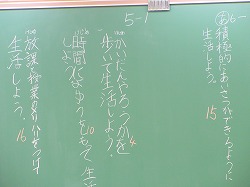 5-1
あ 積極的にあいさつができるように
生活しよう。
15
かいだんやろうかを
歩いて生活しよう!
4
時間によゆうをもって 生
しよう。
0
放課と授業の
生活しよう。
16